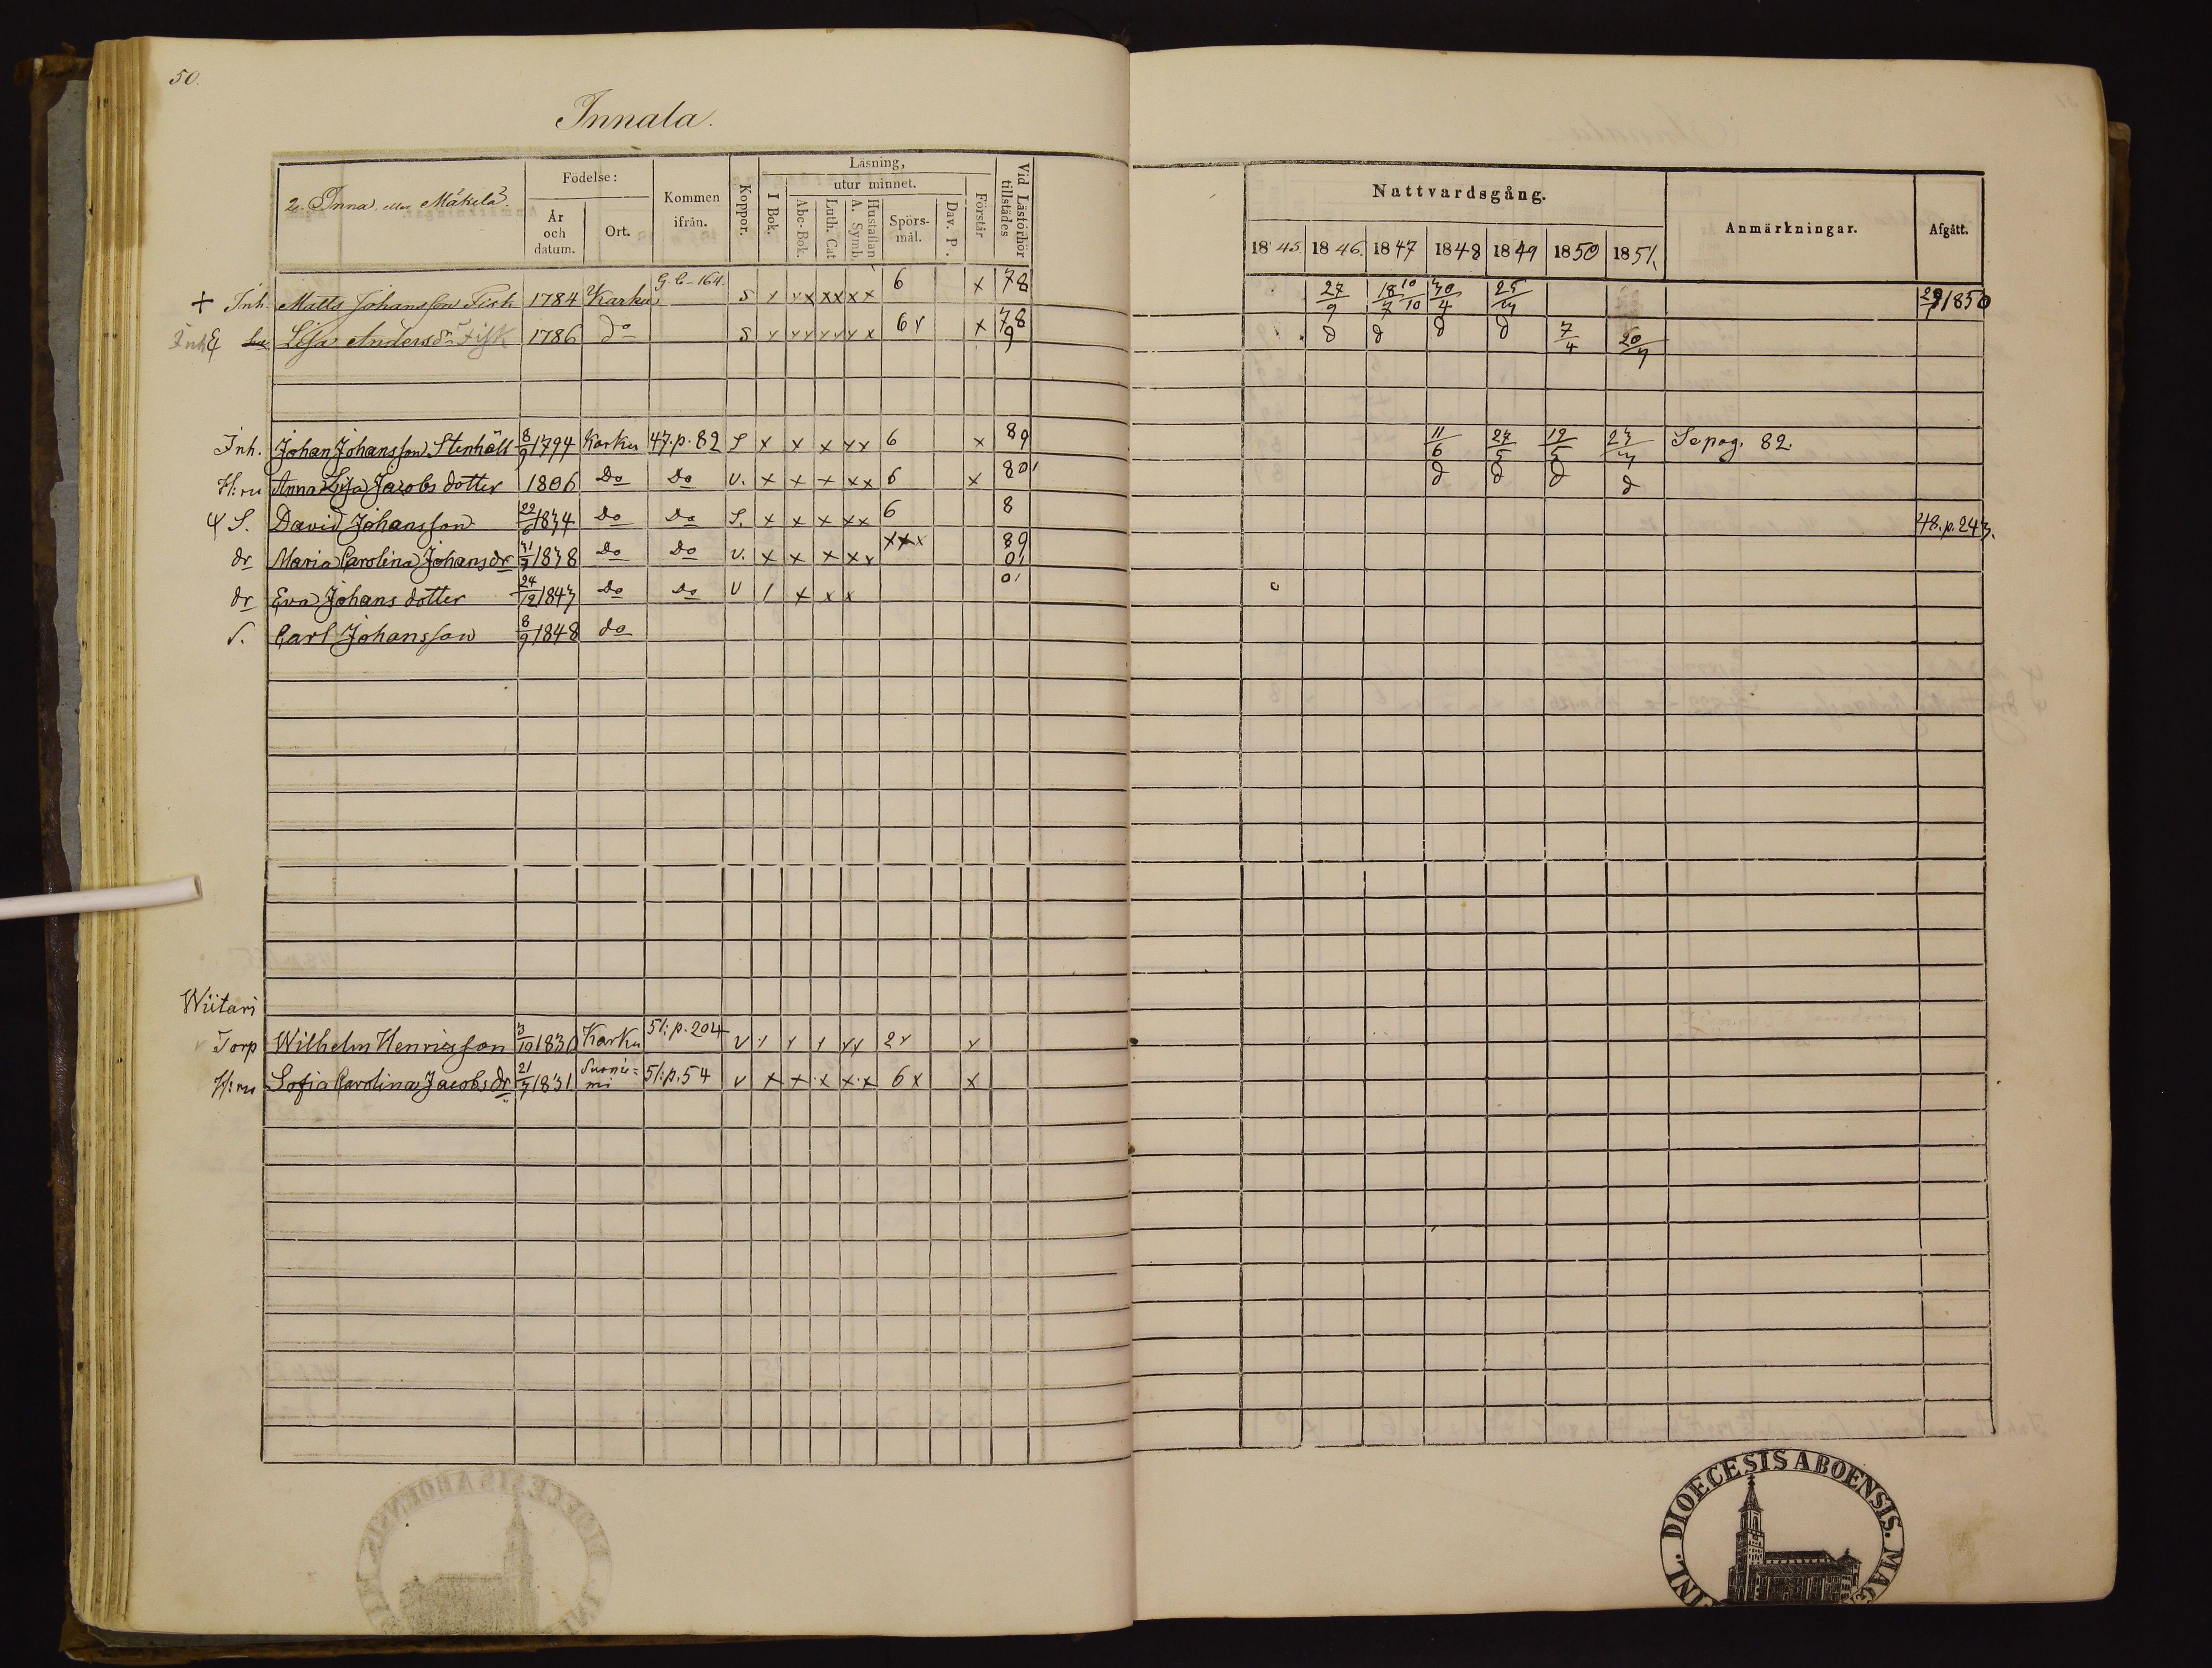 50.
Innala.
2. Inna eller Mäkelä.
Födelse:
År och datum.
Ort.
Kommen ifrån.
Koppor.
Läsning,
I Bok.
utur minnet.
Abc-Bok.
Luth. Cat
Hustaflan A. Symb.
Spörs-mål.
Dav. P.
Förstår
Vid Läsförhör tillstädes
Nattvardsgång.
1845 1846. 1847 1848 1849 1850 1851.
Anmärkningar.
Afgått.
+ Inh. Matts Johansson Fisk 1784 Karku G. C. 164. s 6 x 78 27/9 18/7 10/10 30/4 25/ 29/ 1850
Inh Lisa Andersdr Fisk 1786 do s 6 x 78 9 d d d d 7/4 20/
Inh. Johan Johansson Stenhäll 8/9 1794 Karku 47. p. 82 S x x x xx 6 x 89 11/6 27/5 19/5 Se pag. 82.
H:ru Anna Lisa Jacobs dotter 1806 Do Do v. x x x xx 6 x 801 d d d d
S. David Johansson 22/6 1834 Do Do S. x x x xx 6 8 48. p. 243.
dr Maria Carolina Johansdr 31/7 1838 Do Do v. x x x xx xxx 89 01
dr Eva Johans dotter 24/12 1843 Do Do v / x x x 01
S. Carl Johansson 8/9 1848 do
Wiitari
Torp Wilhelm Henricsson 3/10 1830 Karku 51: p. 204 v 2
H:ru Sofia Carolina Jacobs dr 21/7 1831 Suonie=mi 51: p. 54 v x x x x x 6 x x
DIOECESIS ABOENSIS.